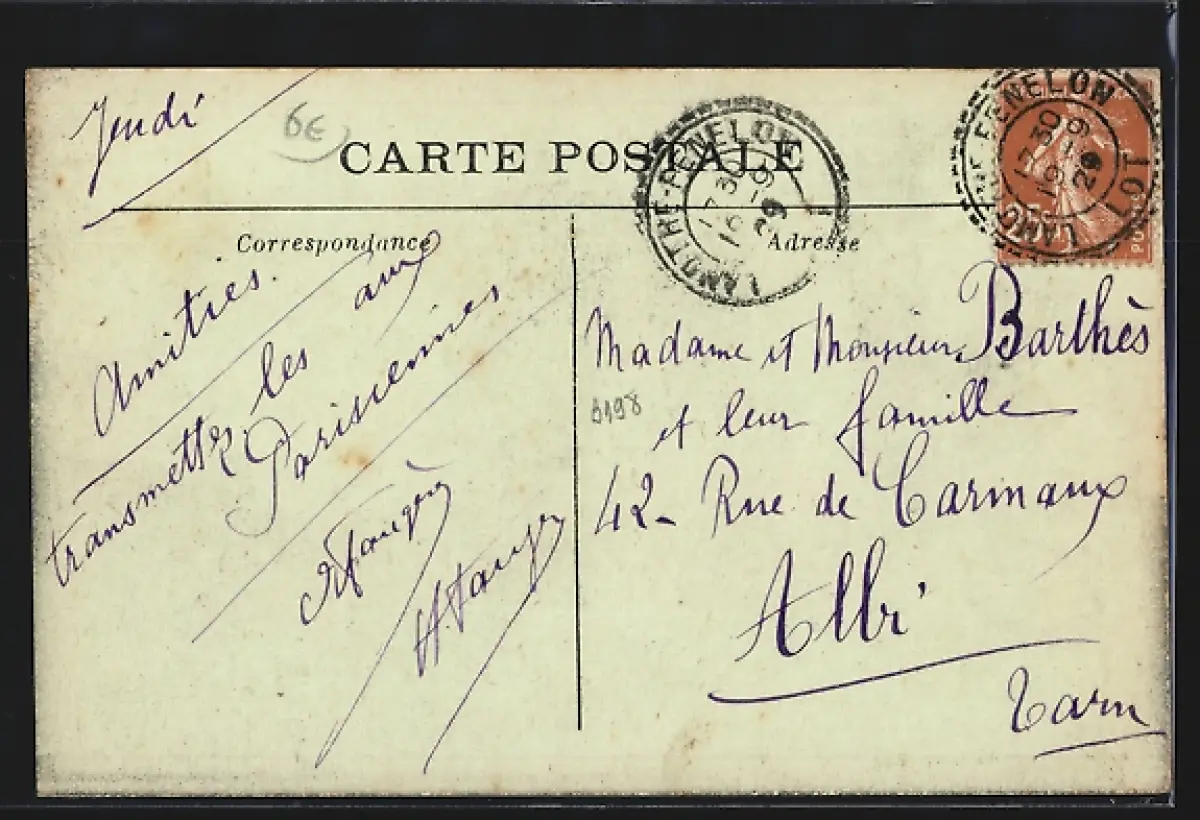 Jeudi
6€
CARTE POSTALE
LAMOTHE-FENELON
17 30
19-9
29
LAMOTHE-FENELON
LOT
17 30
19-9
29
Correspondance
Adresse
Amitiés.
transmettez les aux
Parisiennes
Madame et Monsieur Barthès
et leur famille
42- Rue de Carmaux
Albi
Tarn